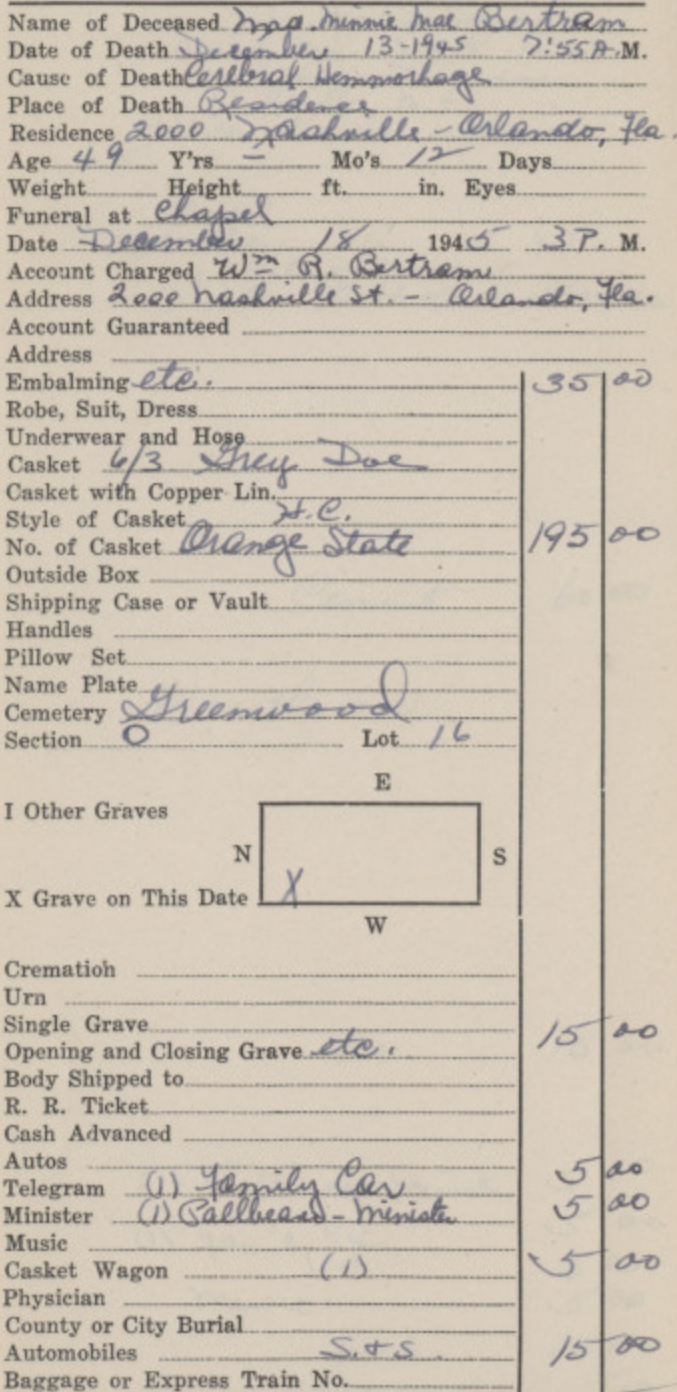 Name of Deceased Mrs. Minnie Mae Bertram
Date of Death December 13-1945 7:55 A.M.
Cause of Death Cerebral Hemmorhage
Place of Death Residence
Residence 2000 Nashville - Orlando, Fla.
Age 49 Y'rs - Mo's 12 Days
Weight Height ft. in. Eyes
Funeral at Chapel
Date December 18 1945 3 P. M.
Account Charged Wm R. Bertram
Address 2000 Nashville St. - Orlando, Fla.
Account Guaranteed
Address
Embalming etc. 35 00
Robe, Suit, Dress
Underwear and Hose
Casket 6/3 Grey Doe
Casket with Copper Lin.
Style of Casket H.C.
No. of Casket Orange State 195 00
Outside Box
Shipping Case or Vault
Handles
Pillow Set
Name Plate
Cemetery Greenwood
Section O Lot 16
E
I Other Graves
N S
X Grave on This Date X
W
Crematioh
Urn
Single Grave
Opening and Closing Grave etc. 15 00
Body Shipped to
R. R. Ticket
Cash Advanced
Autos
Telegram (1) Family Car 5 00
Minister (1) Pallbears - Minister 5 00
Music
Casket Wagon (1) 5 00
Physician
County or City Burial
Automobiles S. & S. 15 00
Baggage or Express Train No.